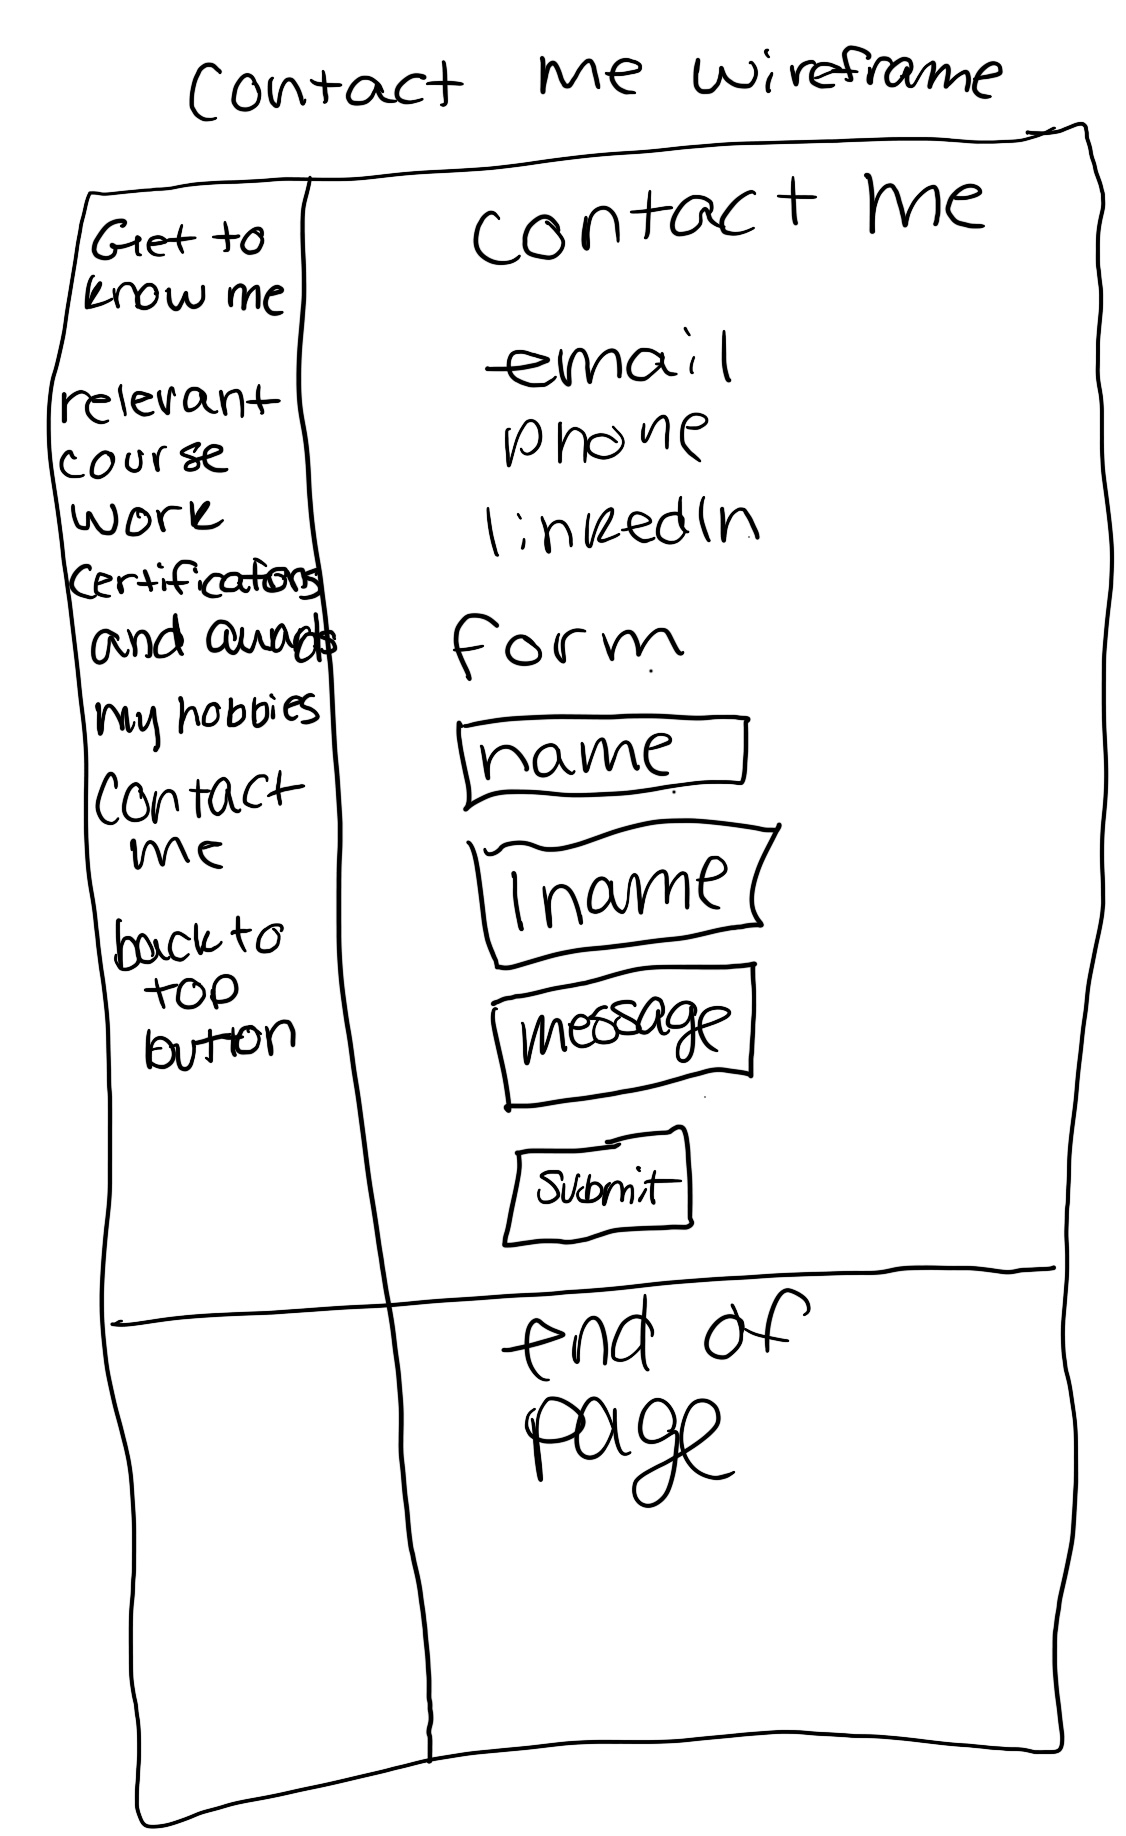 Contact me wireframe
Get to
know me
relevant
course
work
Certifications
and awards
my hobbies
Contact
me
back to
top
button
Contact me
email
phone
linkedIn
form
name
lname
message
submit
end of
page